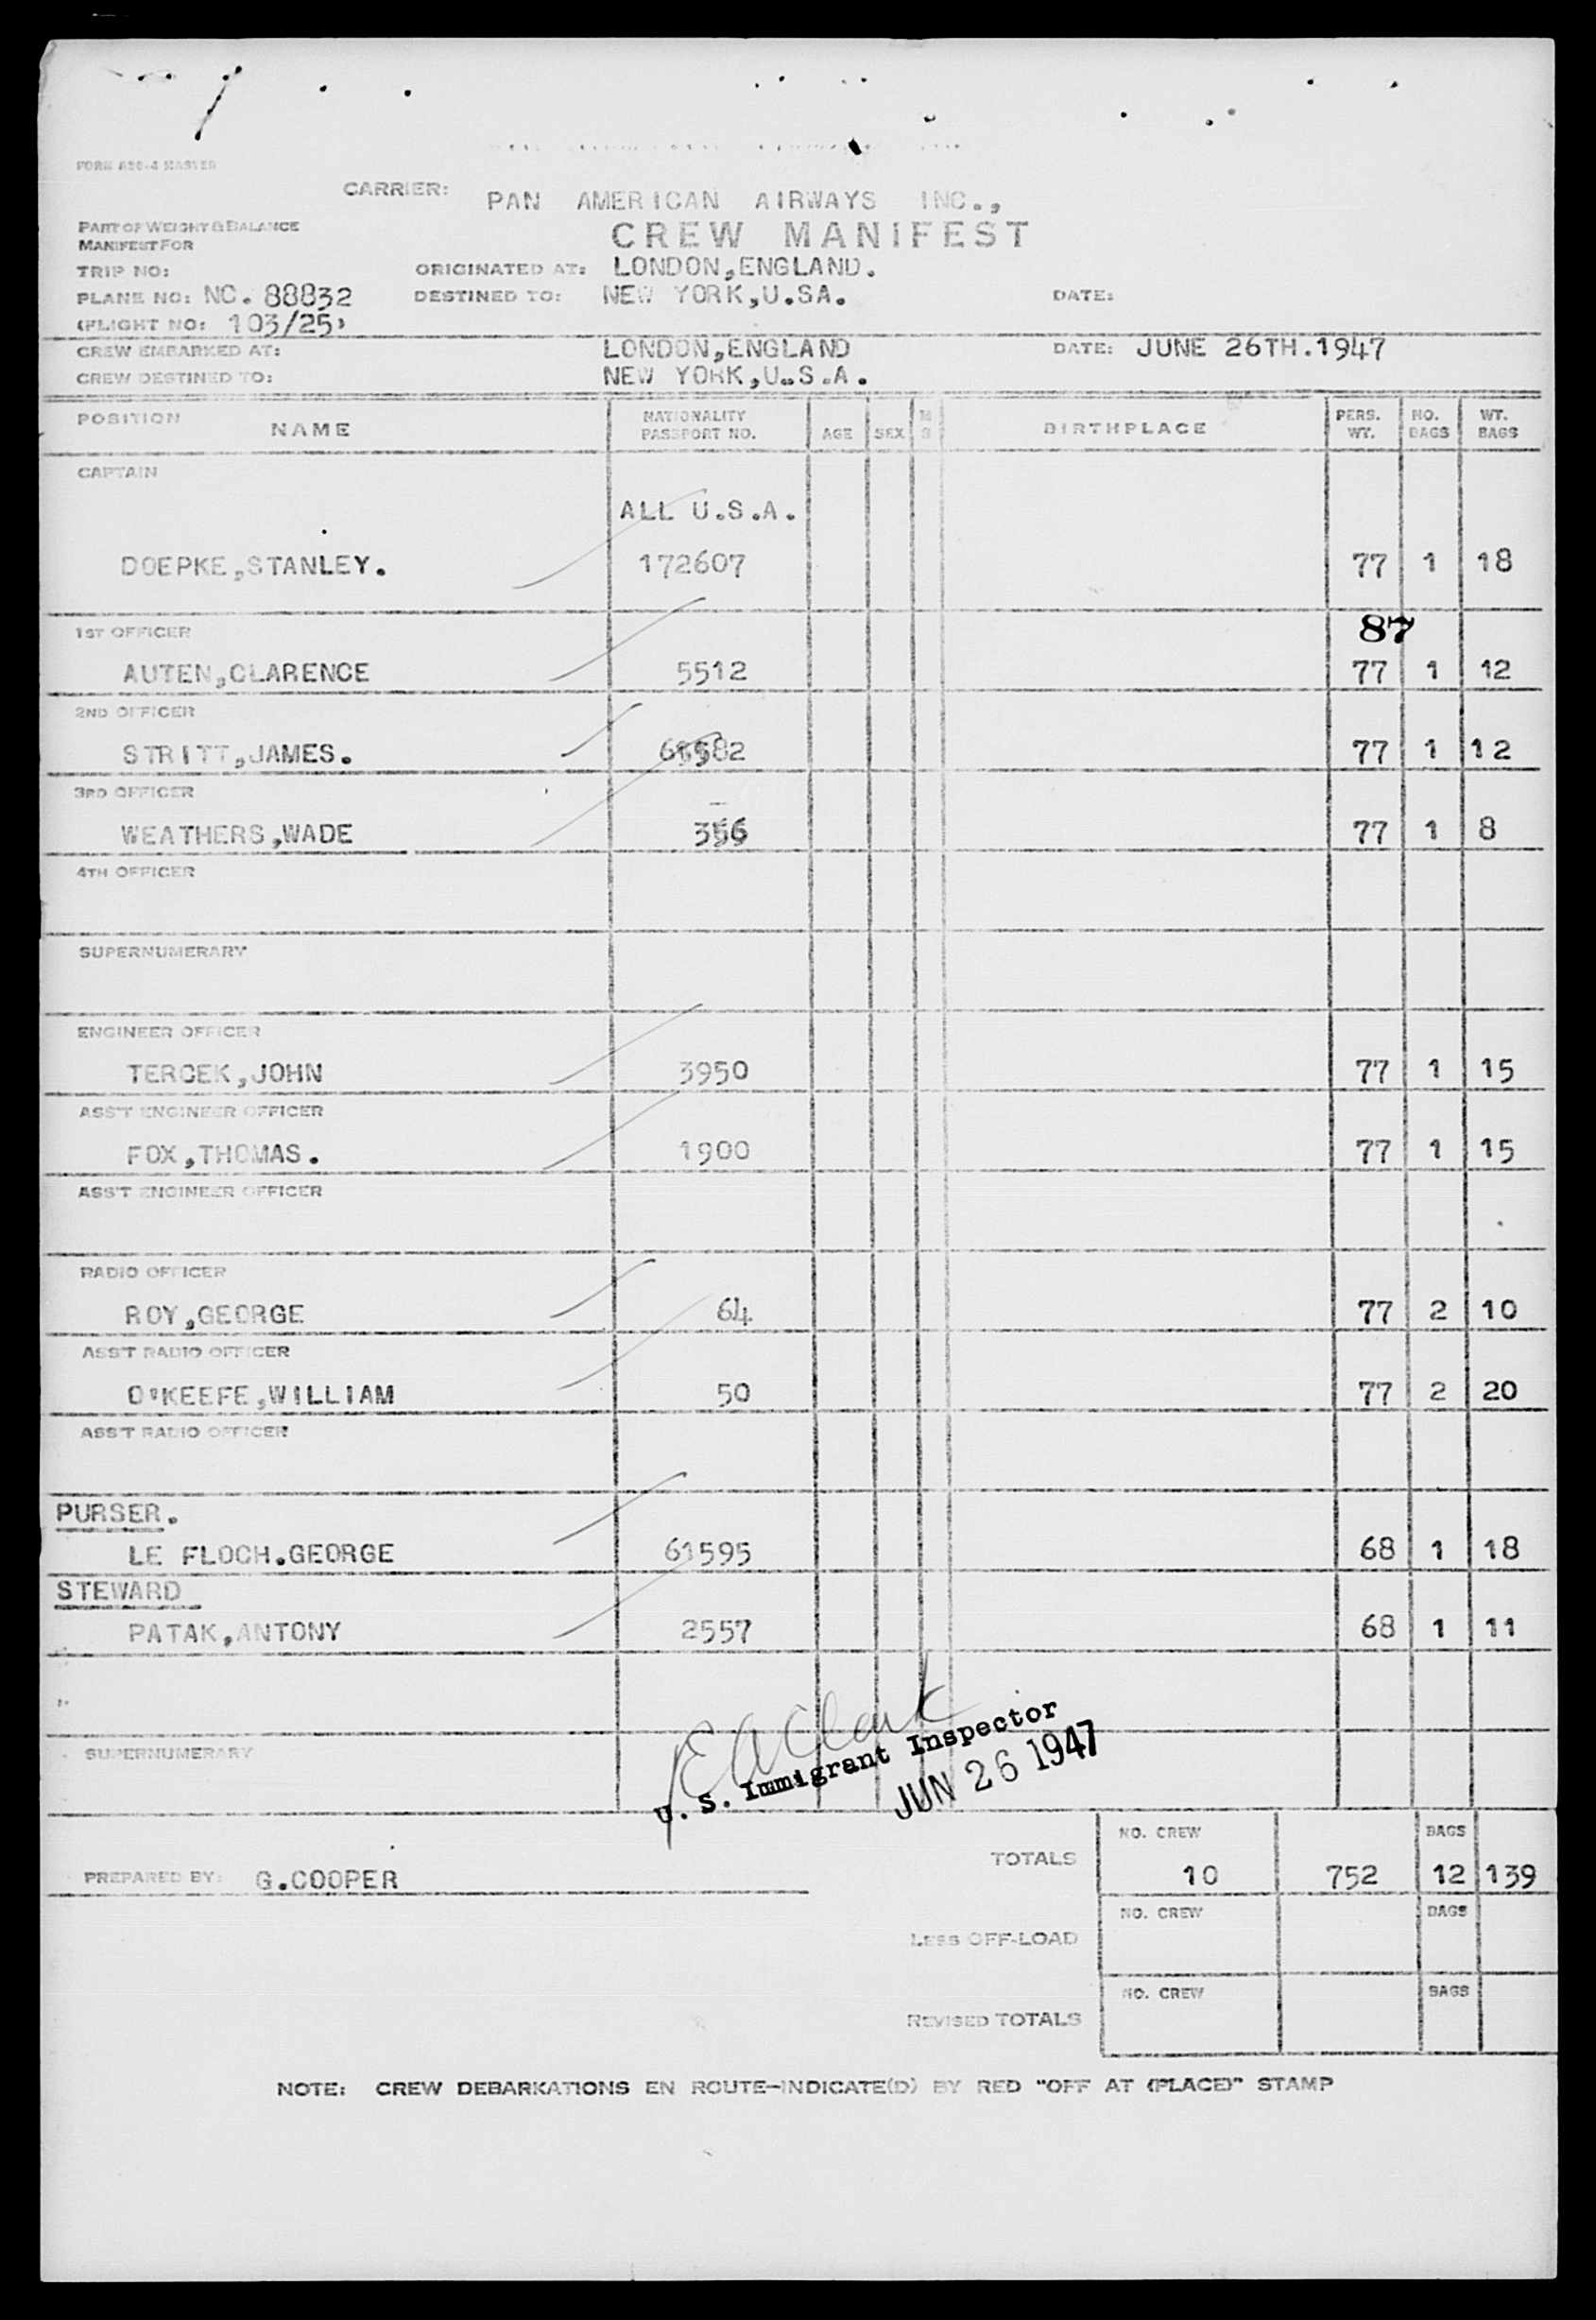 FORM A20-4 MASTER
CARRIER: PAN AMERICAN AIRWAYS INC.,
PART OF WEIGHT & BALANCE
MANIFEST FOR
CREW MANIFEST
TRIP NO: ORIGINATED AT: LONDON,ENGLAND.
PLANE NO: NC. 88832 DESTINED TO: NEW YORK,U.SA. DATE:
(FLIGHT NO: 103/25)
CREW EMBARKED AT: LONDON,ENGLAND DATE: JUNE 26TH.1947
CREW DESTINED TO: NEW YORK,U.S.A.
POSITION NAME NATIONALITY PASSPORT NO. AGE SEX M S BIRTHPLACE PERS. WT. NO. BAGS WT. BAGS
CAPTAIN
ALL U.S.A.
DOEPKE,STANLEY. 172607 77 1 18
1ST OFFICER 87
AUTEN,CLARENCE 5512 77 1 12
2ND OFFICER
STRITT,JAMES. 77 1 12
3RD OFFICER
WEATHERS,WADE 77 1 8
4TH OFFICER
SUPERNUMERARY
ENGINEER OFFICER
TERCEK,JOHN 3950 77 1 15
ASS'T ENGINEER OFFICER
FOX,THOMAS. 1900 77 1 15
ASS'T ENGINEER OFFICER
RADIO OFFICER
ROY,GEORGE 64 77 2 10
ASS'T RADIO OFFICER
O'KEEFE,WILLIAM 50 77 2 20
ASS'T RADIO OFFICER
PURSER.
LE FLOCH.GEORGE 61595 68 1 18
STEWARD
PATAK,ANTONY 2557 68 1 11
SUPERNUMERARY
E A Clark
U. S. Immigrant Inspector
JUN 26 1947
NO. CREW BAGS
PREPARED BY: G.COOPER TOTALS 10 752 12 139
NO. CREW BAGS
LESS OFF-LOAD
NO. CREW BAGS
REVISED TOTALS
NOTE: CREW DEBARKATIONS EN ROUTE-INDICATE(D) BY RED "OFF AT (PLACE)" STAMP